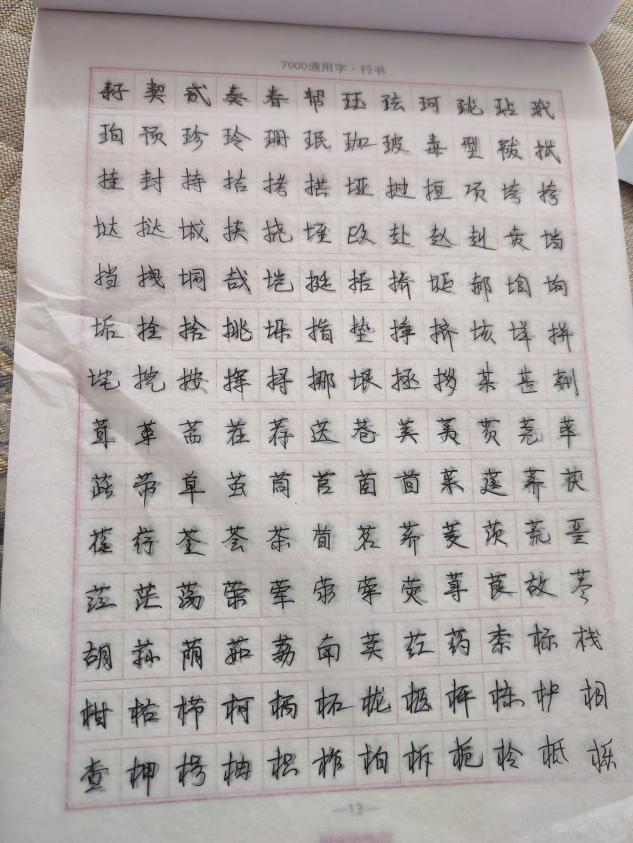 7000通用字·行书
籽契贰奏春帮珏珐珂珑玷玳
珀顸珍玲珊珉珈玻毒型韨拭
挂封持拮拷拱垭挝垣项垮挎
垯挞城挟挠垤政赴赵赳贲垱
挡拽垌哉垲挺括挢垍郝垧垢
拴拾挑垛指垫挣挤垓垟拼
垞挖按挥挦挪垠拯拶某甚荆
茸革茜茬荐荙巷荚荑贳荛荜
茈带草茧茼莒茵茴荞茯
荏荇荃荟茶荀茗荠茭茨荒垩
茳茫荡荣荤荥荦荧荨茛故荩
胡荪荫茹荔南荬荭药柰标栈
柑枯栉柯柄柘栊柩枰栋栌相
查柙枵柚枳柞柏柝栀柃柢栎
—13—